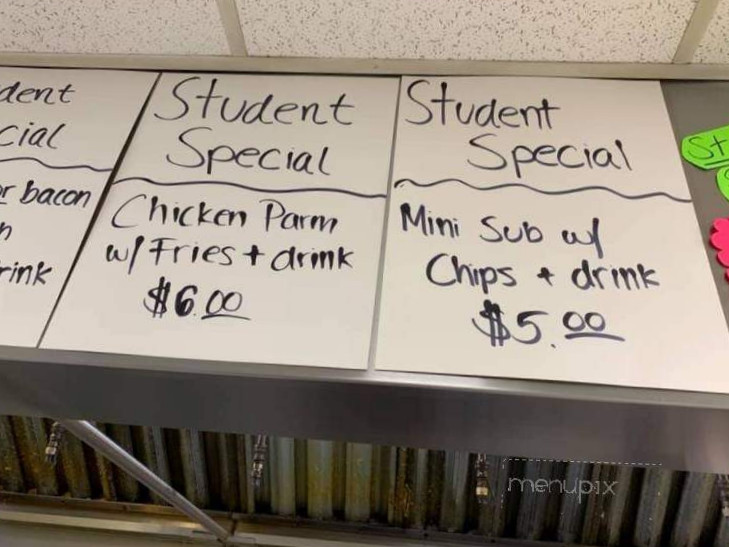 dent
cial
r bacon
rink
Student
Special
Chicken Parm
w/ Fries + drink
$6.00
Student
Special
Mini Sub w/
Chips + drink
$5.00
St
menupix